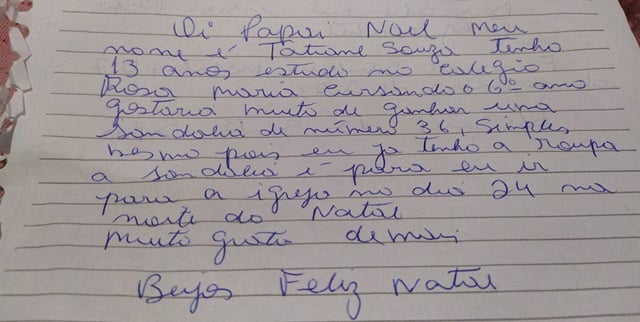 Oi Papai Noel meu
nome é Tatiane Souza tenho
13 anos estudo no colegio
Rosa maria cursando o 6º ano
gostaria muito de ganhar uma
sandalia de número 36, simples
mesmo pois eu ja tenho a roupa
a sandalia é para eu ir
para a igreja no dia 24 na
noite do Natal
muito grata demais
Beijos Feliz Natal